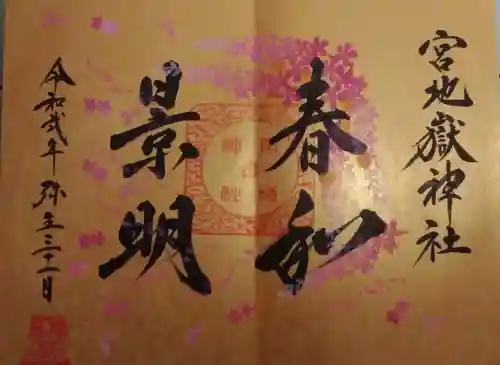 宮地嶽神社
春和
景明
令和弐年弥生三十一日